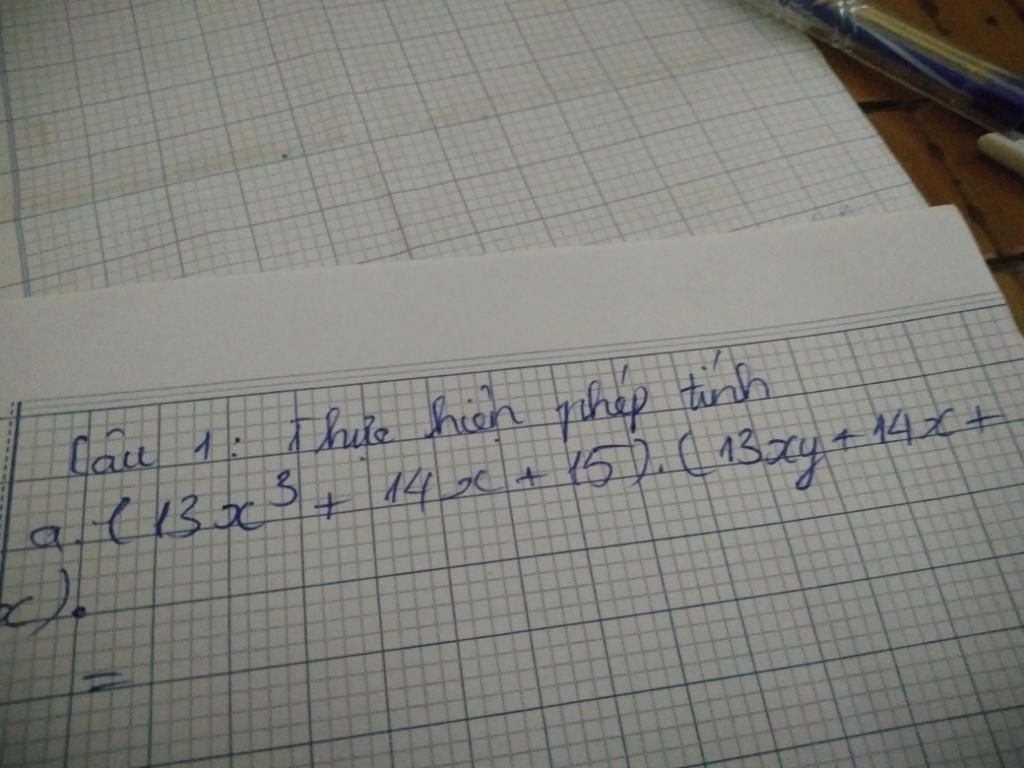 Câu 1: Thực hiện phép tính
a. (13x³ + 14x + 15).(13xy + 14x +
x).
=